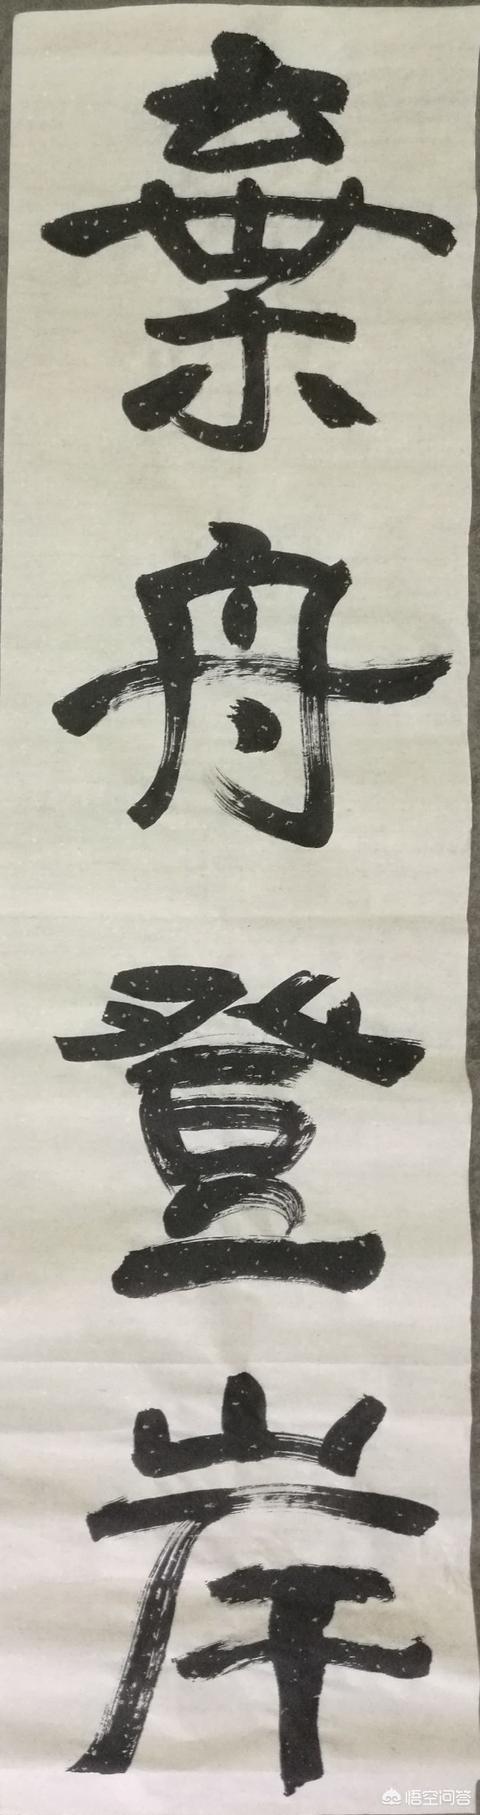 棄舟登岸
悟空问答